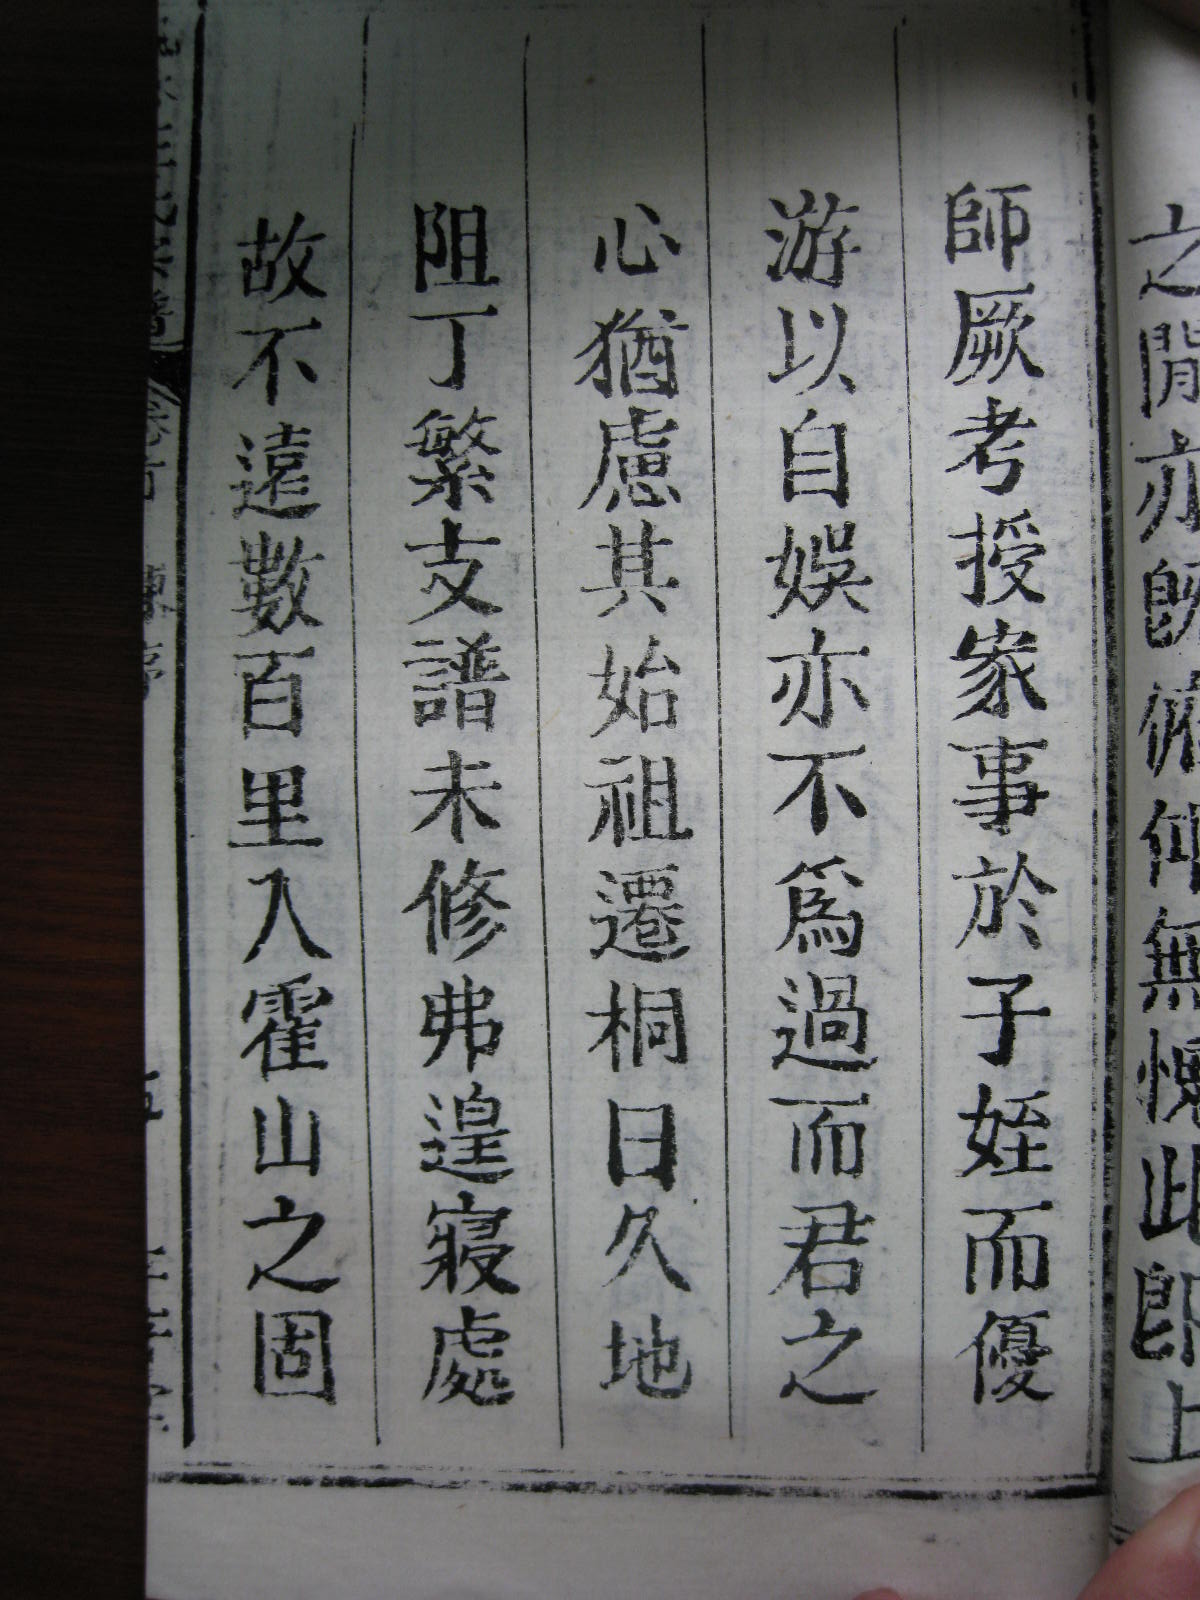 之閒亦卽俯仰無愧此卽上
師厥考授家事於子姪而優
游以自娛亦不爲過而君之
心猶慮其始祖遷桐日久地
阻丁繁支譜未修弗遑寢處
故不遠數百里入霍山之固